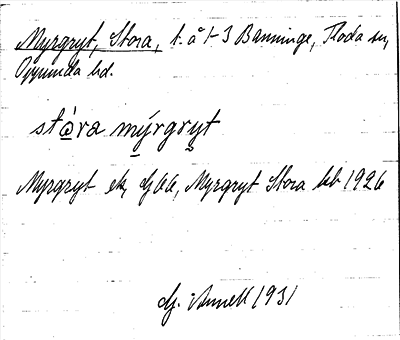 Myrgryt, Stora, t. å 1-3 Banninge, Floda sn,
Oppunda hd.
stòra mýrgryt
Myrgryt ek, GJ66, Myrgryt Stora kb 1926
G. Annell 1931